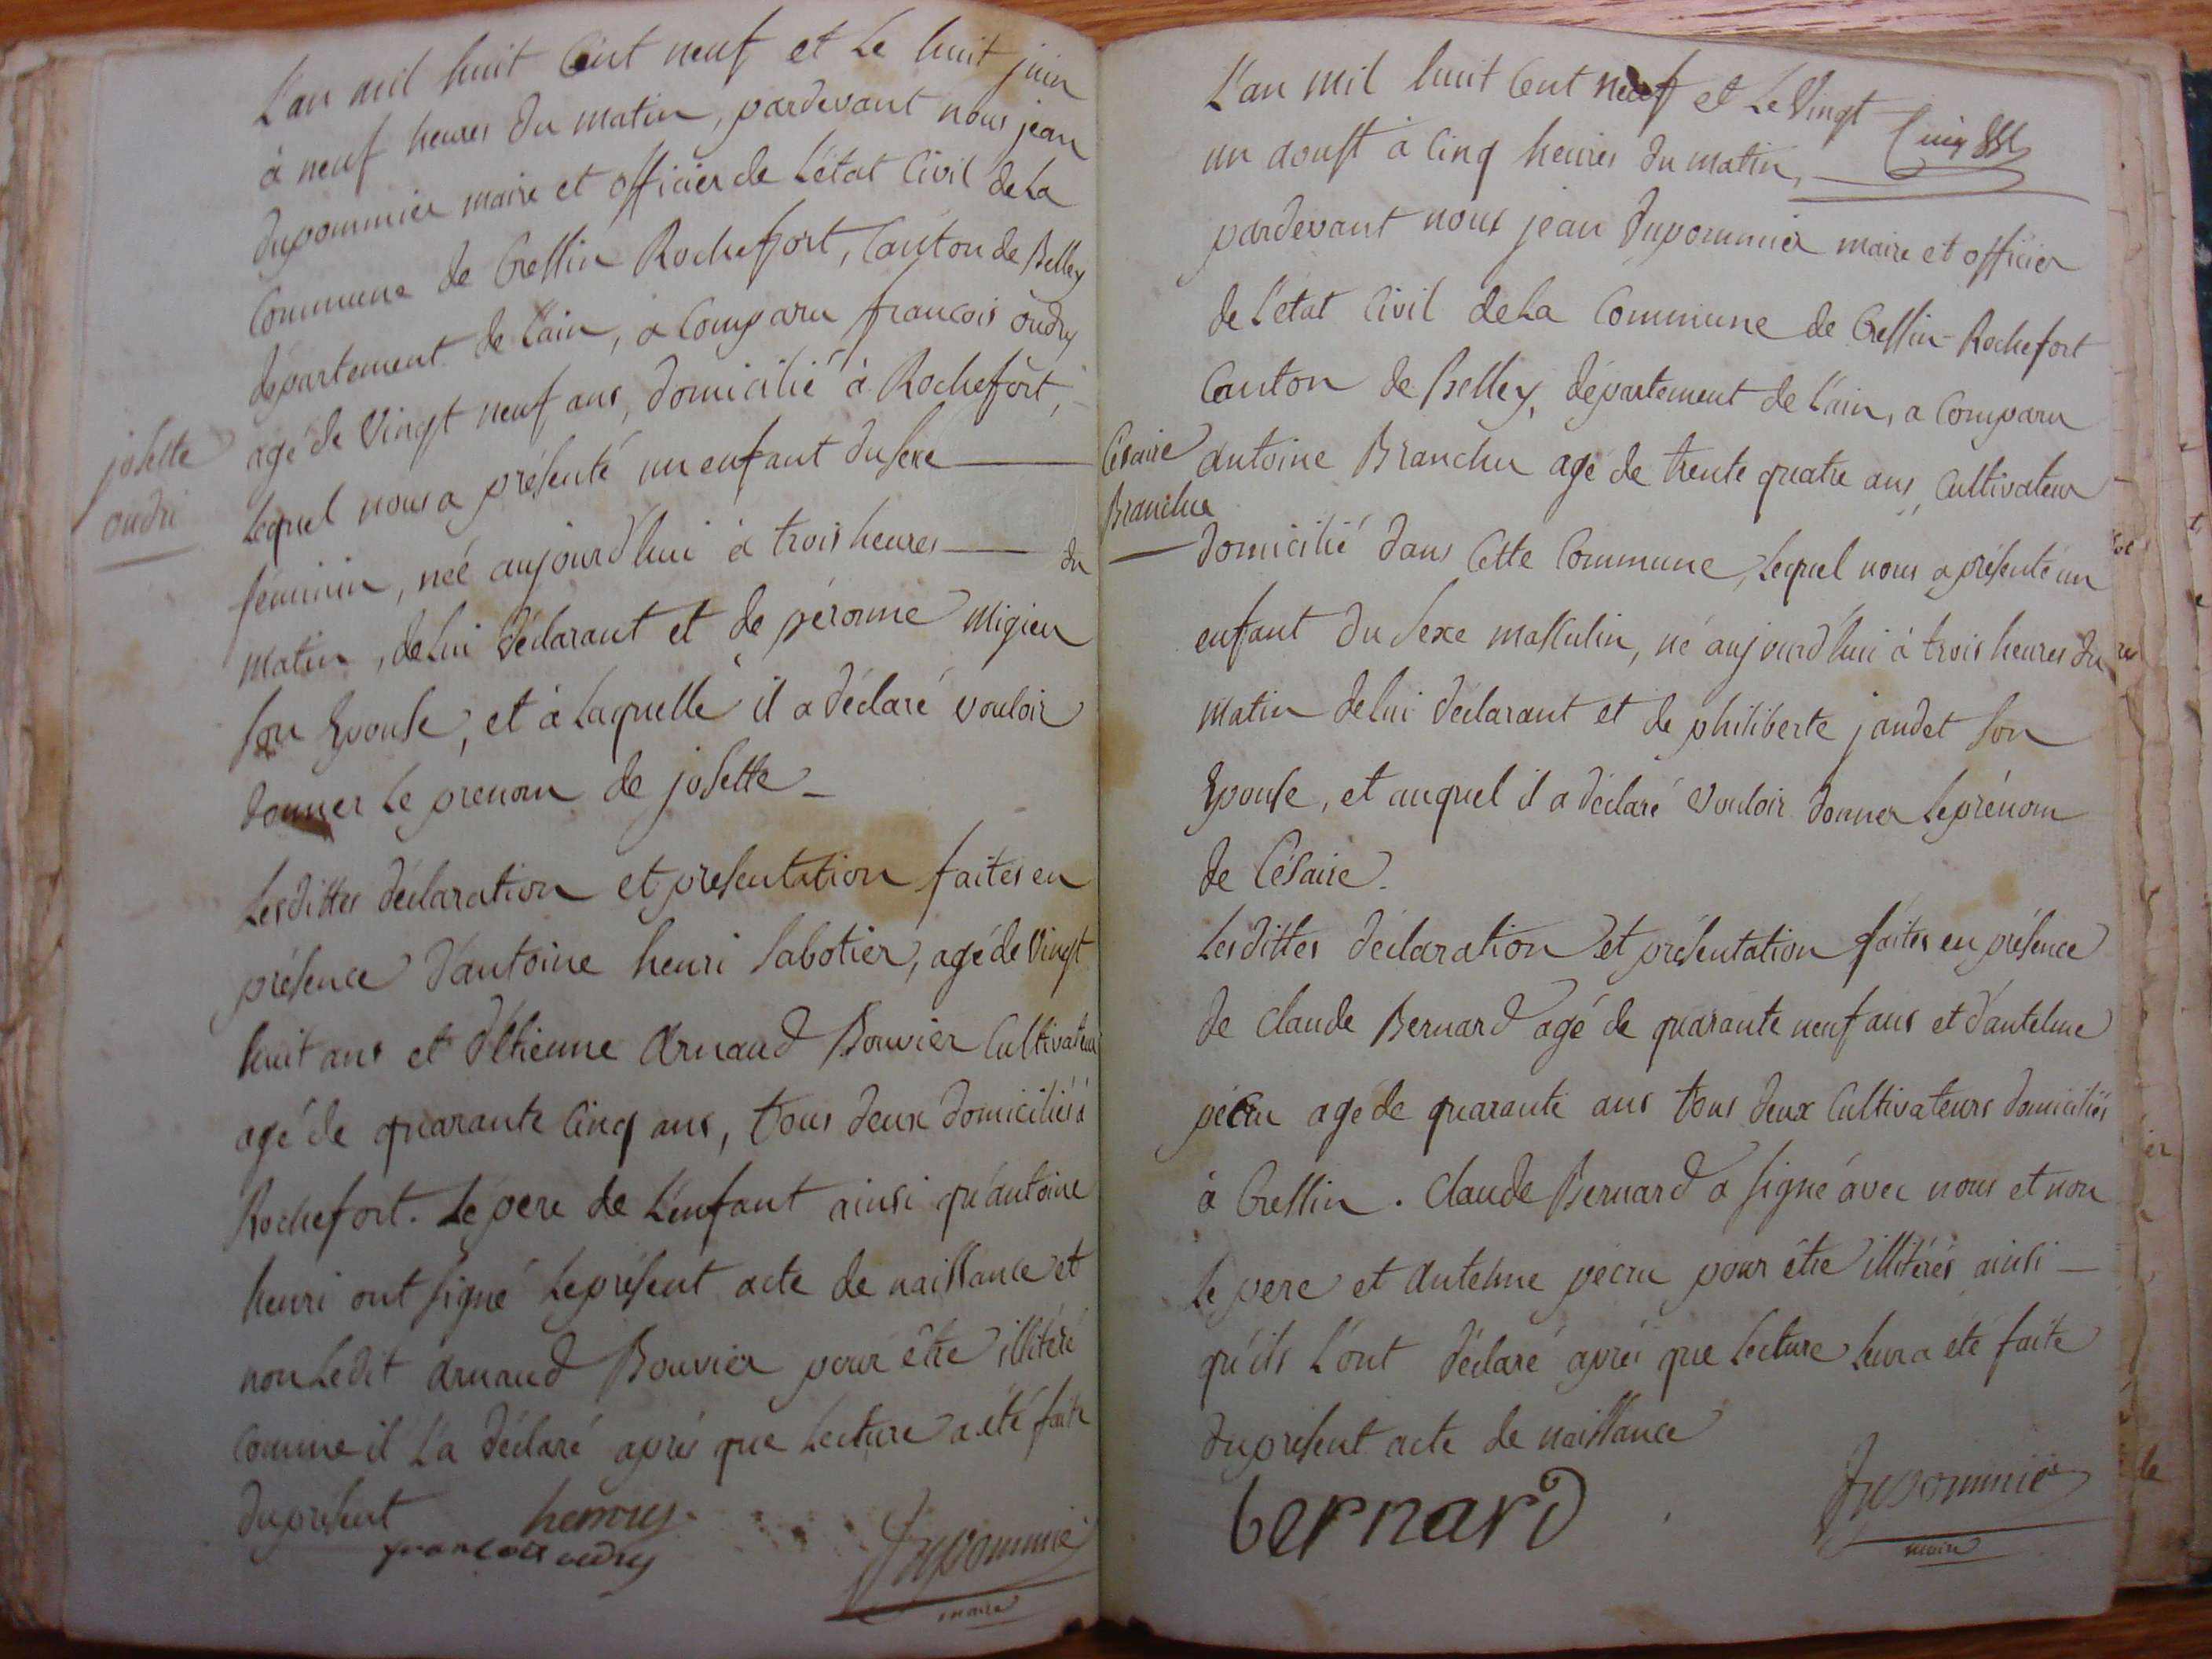 L'an mil huit Cent neuf et Le huit juin
à neuf heures du matin, pardevant nous jean
dupommier maire et officier de L'état Civil de La
Commune de Cressin Rochefort, Canton de Belley
département de L'ain, a Comparu francois oudry
agé de Vingt neuf ans, domicilié à Rochefort,
Lequel nous a présenté un enfant du sexe
féminin, née aujourd'hui à trois heures du
matin, de Lui déclarant et de péronne Migieu
son Epouse, et à Laquelle il a déclaré vouloir
donner Le prenom de josette
josette
oudri
Lesdittes déclaration et presentation faites en
présence d'antoine henri Sabotier, agé de Vingt
huit ans et d'Etienne Arnaud Bouvier Cultivateur
agé de quarante Cinq ans, tous deux domiciliés à
Rochefort. Le pere de L'enfant ainsi qu'antoine
henri ont signé Le présent acte de naissance et
non Ledit Arnaud Bouvier pour être illitéré
comme il L'a déclaré après que Lecture a été faite
du présent
henry
francois oudry
Dupommier
maire
L'an mil huit Cent neuf et Le Vingt
un aoust à Cinq heures du matin,
pardevant nous jean Dupommier maire et officier
de L'état Civil de La Commune de Cressin-Rochefort
Canton de Belley, département de L'ain, a Comparu
antoine Branchu agé de trente quatre ans, Cultivateur
domicilié dans Cette Commune, Lequel nous a présenté un
enfant du Sexe masculin, né aujourd'hui à trois heures du
matin de Lui déclarant et de philiberte jandet son
Epouse, et auquel il a déclaré vouloir donner Le prénom
de Césaire.
Césaire
Branchu
Lesdittes déclaration et présentation faites en présence
de Claude Bernard agé de quarante neuf ans et d'antelme
pécru agé de quarante ans tous deux Cultivateurs domiciliés
à Cressin. Claude Bernard a signé avec nous et non
Le pere et Antelme pecru pour être illitérés ainsi
qu'ils L'ont déclaré après que Lecture Leur a été faite
du présent acte de naissance
bernard
Dupommier
maire